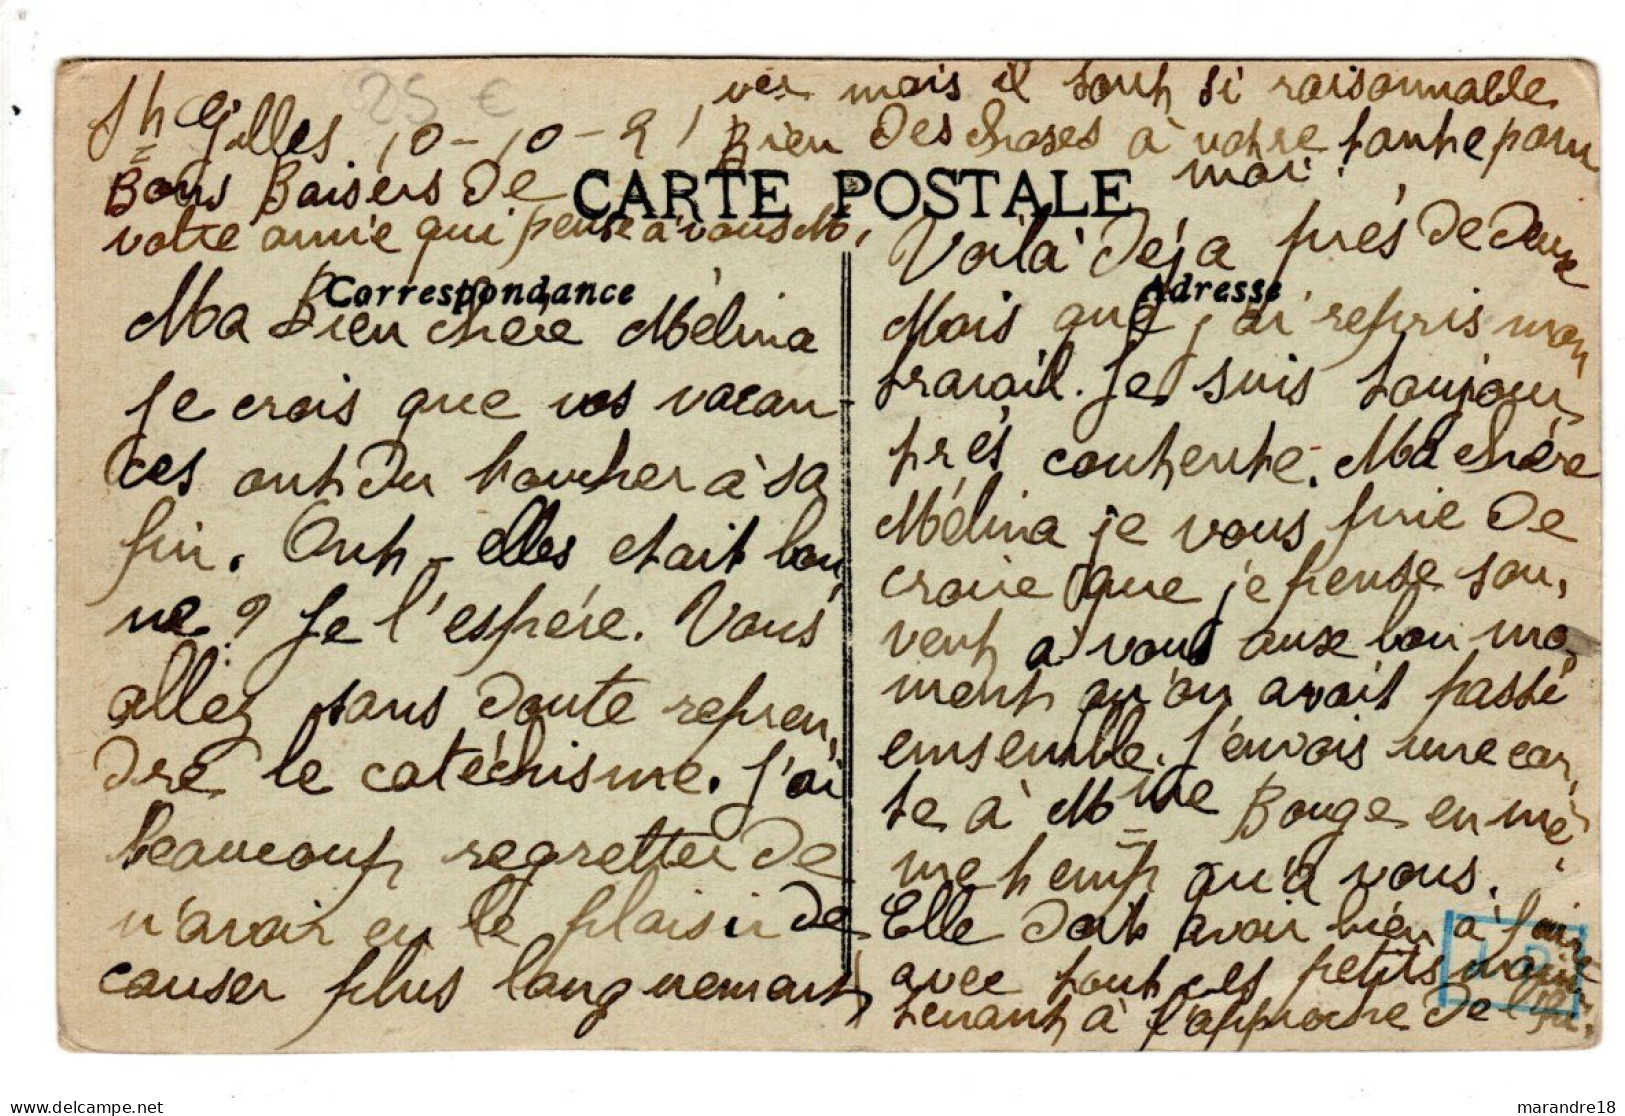 St Gilles 10-10-21
Bons Baisers De
votre amie qui pense à vous M.
CARTE POSTALE
Correspondance
Ma Bien chère Mélina
Je crois que vos vacan-
ces ont Du toucher à sa
fin. Ont-elles etait bon,
ne? Je l'espére. Vous
allez sans Doute repren,
Dre le catéchisme. J'ai
beaucoup regretter De
n'avoir eu le plaisir De
causer plus longuement
Adresse
Voilà Déja prés De Deux
Mois que j'ai repris mon
travail. Je suis toujour
trés contente. Ma chère
Mélina je vous prie De
croire que je pense sou,
vent a vous aux bon mo,
ment qu'on avait passé
ensemble. J'envois une car,
te à Mme Bouge en mê-
me temp qu'a vous.
Elle Doit avoir bien à faire
avec tout ces petits main,
tenant à l'approche De l'hi,
ver mais il sont si raisonnable
Bien Des choses à votre tante pour
moi.
25 €
marandre18
delcampe.net